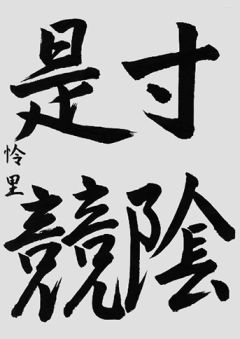 寸陰
是競
怜里